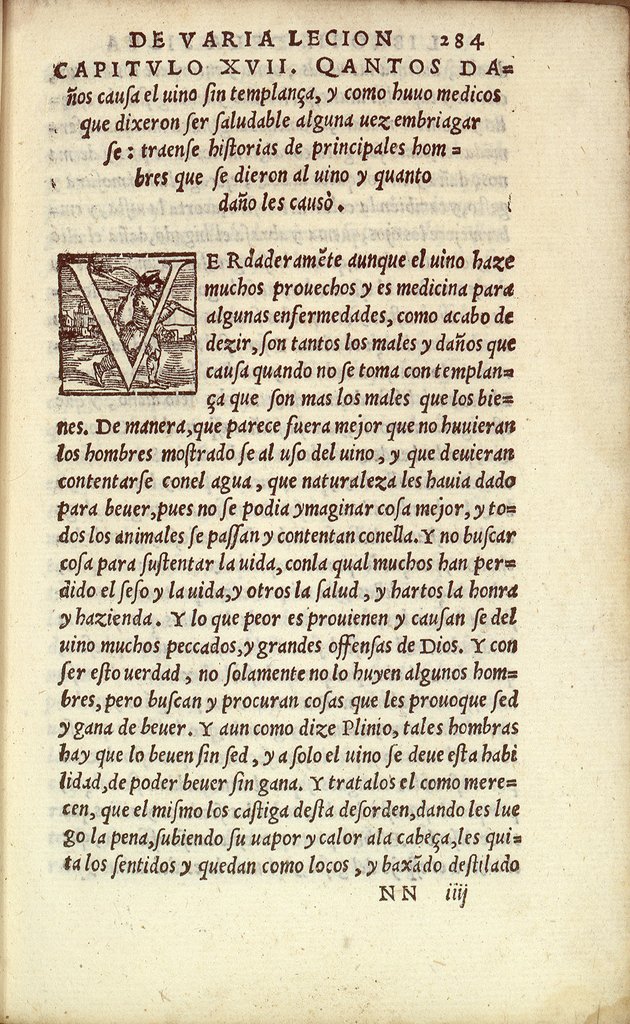 DE VARIA LECION 284
CAPITVLO XVII. QANTOS DA=
ños cauſa el uino ſin templança, y como huuo medicos
que dixeron ſer ſaludable alguna uez embriagar
ſe: traenſe hiſtorias de principales hom=
bres que ſe dieron al uino y quanto
daño les causò.
VERdaderamẽte aunque el uino haze
muchos prouechos y es medicina para
algunas enfermedades, como acabo de
dezir, ſon tantos los males y daños que
cauſa quando no ſe toma con templan=
ça que ſon mas los males que los bie=
nes. De manera, que parece fuera mejor que no huuieran
los hombres moſtrado ſe al uſo del uino, y que deuieran
contentarſe conel agua, que naturaleza les hauia dado
para beuer, pues no ſe podia ymaginar coſa mejor, y to=
dos los animales ſe paſſan y contentan conella. Y no buſcar
coſa para ſuſtentar la uida, conla qual muchos han per=
dido el ſeſo y la uida, y otros la ſalud, y hartos la honra
y hazienda. Y lo que peor es prouienen y cauſan ſe del
uino muchos peccados, y grandes offenſas de Dios. Y con
ſer eſto uerdad, no ſolamente no lo huyen algunos hom=
bres, pero buſcan y procuran coſas que les prouoque ſed
y gana de beuer. Y aun como dize Plinio, tales hombras
hay que lo beuen ſin ſed, y a ſolo el uino ſe deue eſta habi
lidad, de poder beuer ſin gana. Y tratalos el como mere=
cen, que el miſmo los caſtiga deſta deſorden, dando les lue
go la pena, ſubiendo ſu uapor y calor ala cabeça, les qui=
ta los ſentidos y quedan como locos, y baxãdo deſtilado
NN iiij